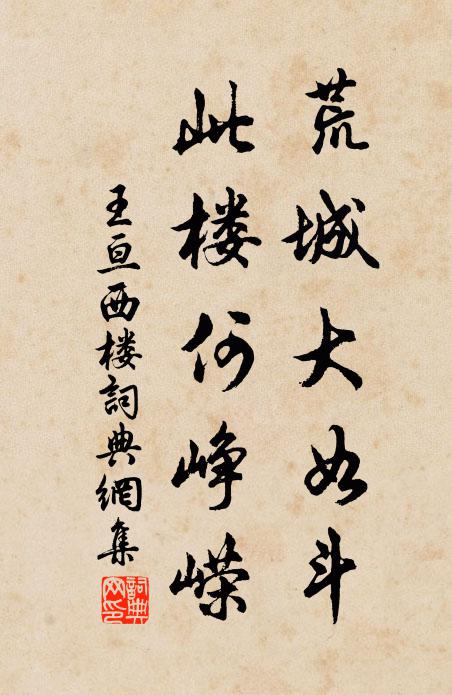 荒城大如斗
此楼何峥嵘
王亘西楼詞典網集
詞典網印